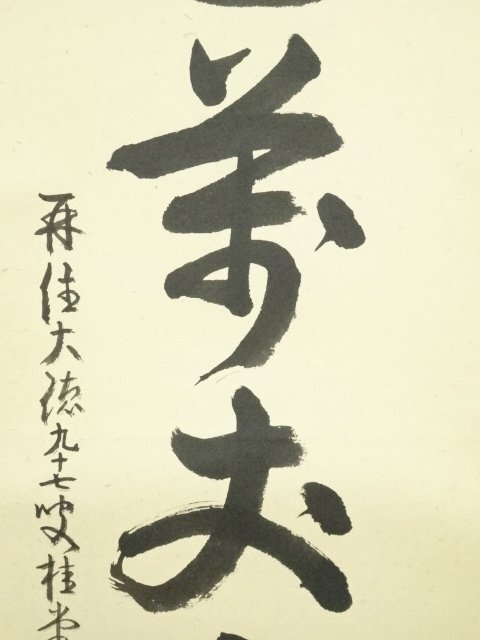 萬丈
再住大徳九十七叟桂堂